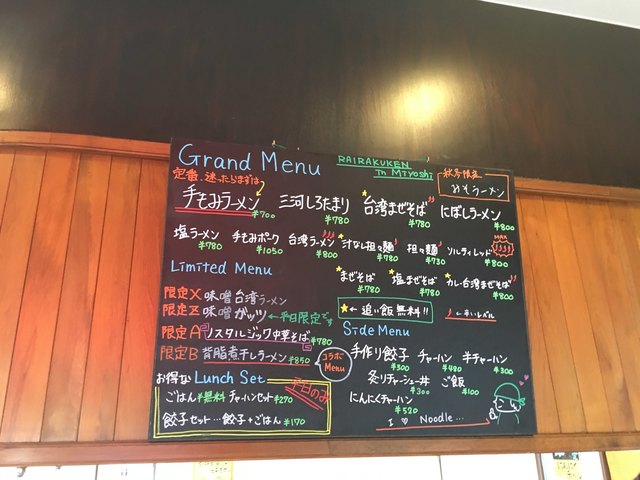 Grand Menu
RAIRAKUKEN
In MIYOSHI
秋冬限定
みそラーメン
定番、迷ったらまずは
手もみラーメン ¥700
三河しろたまり ¥780
台湾まぜそば ¥780
にぼしラーメン ¥800
塩ラーメン ¥780
手もみポーク ¥1050
台湾ラーメン ¥800
汁なし担々麺 ¥780
担々麺 ¥730
ソルティレッド ¥800
MAX
Limited Menu
まぜそば ¥780
塩まぜそば ¥780
カレー台湾まぜそば ¥800
限定X 味噌台湾ラーメン
限定Z 味噌ガッツ ←平日限定です
★← 追い飯無料!!
←辛いレベル
限定A ノスタルジック中華そば ¥780
限定B 背脂煮干しラーメン ¥850
コラボ
Menu
Side Menu
手作り餃子 ¥300
チャーハン ¥480
半チャーハン ¥300
炙りチャーシュー丼 ¥300
ご飯 ¥100
にんにくチャーハン ¥520
I ♡ Noodle...
お得な Lunch Set
平日のみ
ごはん ¥無料 チャーハンセット ¥270
餃子セット…餃子+ごはん ¥170